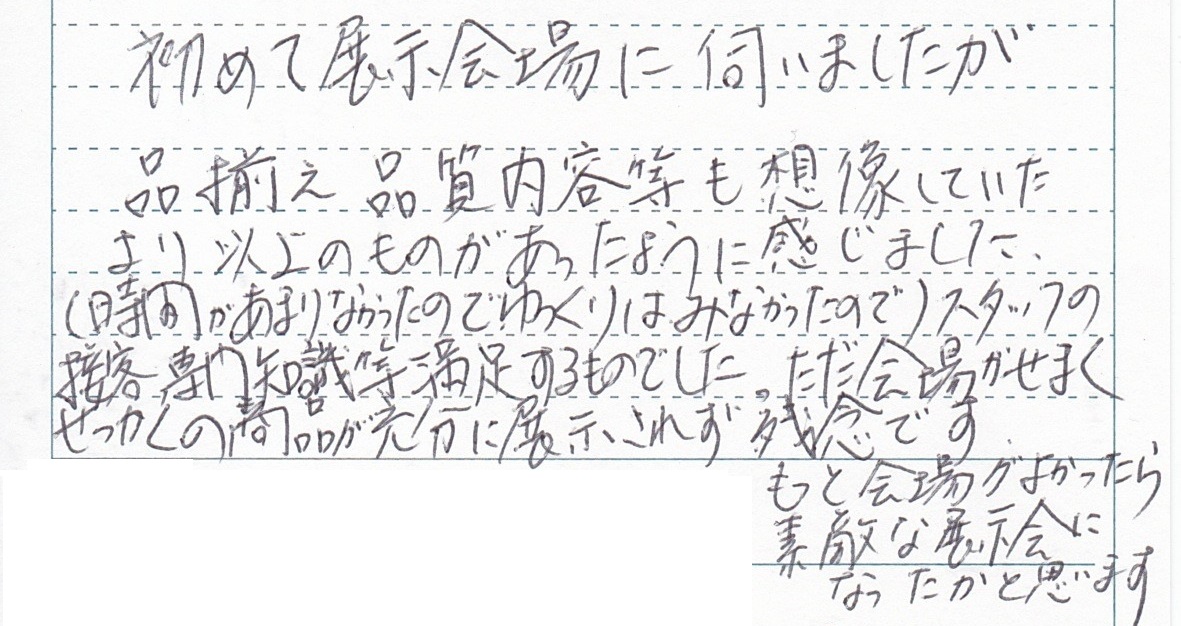 初めて展示会場に伺いましたが
品揃え 品質内容等も想像していた
より以上のものがあったように感じました、
(時間があまりなかったのでゆっくりはみなかったので)スタッフの
接客専門知識等満足するものでした。ただ会場がせまく
せっかくの商品が充分に展示されず残念です.
もっと会場がよかったら
素敵な展示会に
なったかと思います